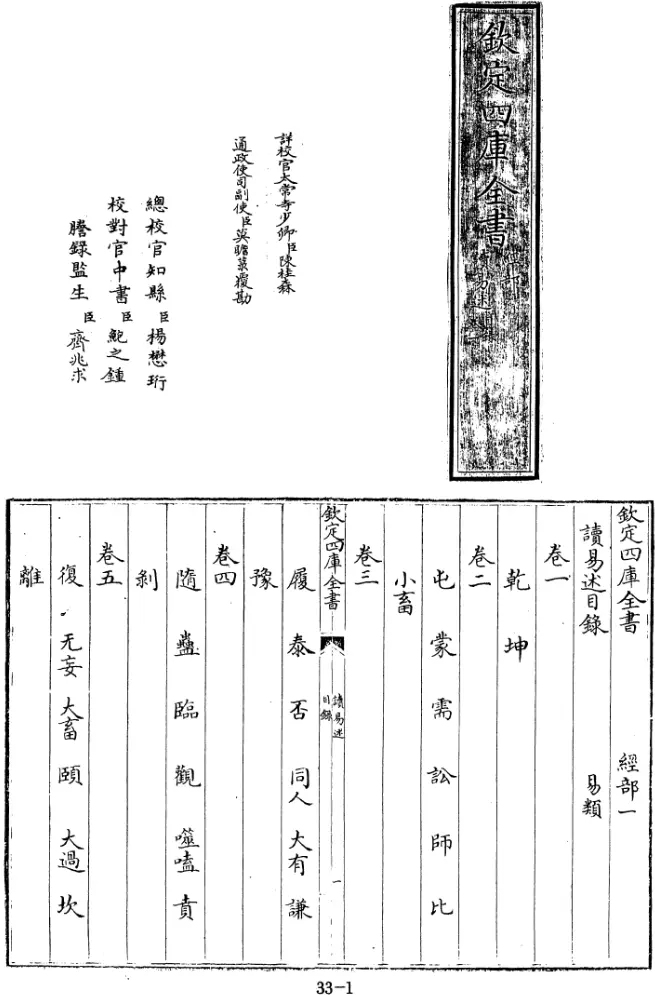 欽定四庫全書
經部
讀易述目錄
詳校官太常寺少卿臣陳桂森
通政使司副使臣莫瞻菉覆勘
總校官知縣臣楊懋珩
校對官中書臣鮑之鍾
謄錄監生臣齊兆求
欽定四庫全書 經部一
讀易述目錄 易類
卷一
乾 坤
卷二
屯 蒙 需 訟 師 比
小畜
卷三
欽定四庫全書
讀易述
目錄
一
履 泰 否 同人 大有 謙
豫
卷四
隨 蠱 臨 觀 噬嗑 賁
剝
卷五
復 无妄 大畜 頤 大過 坎
離
33-1